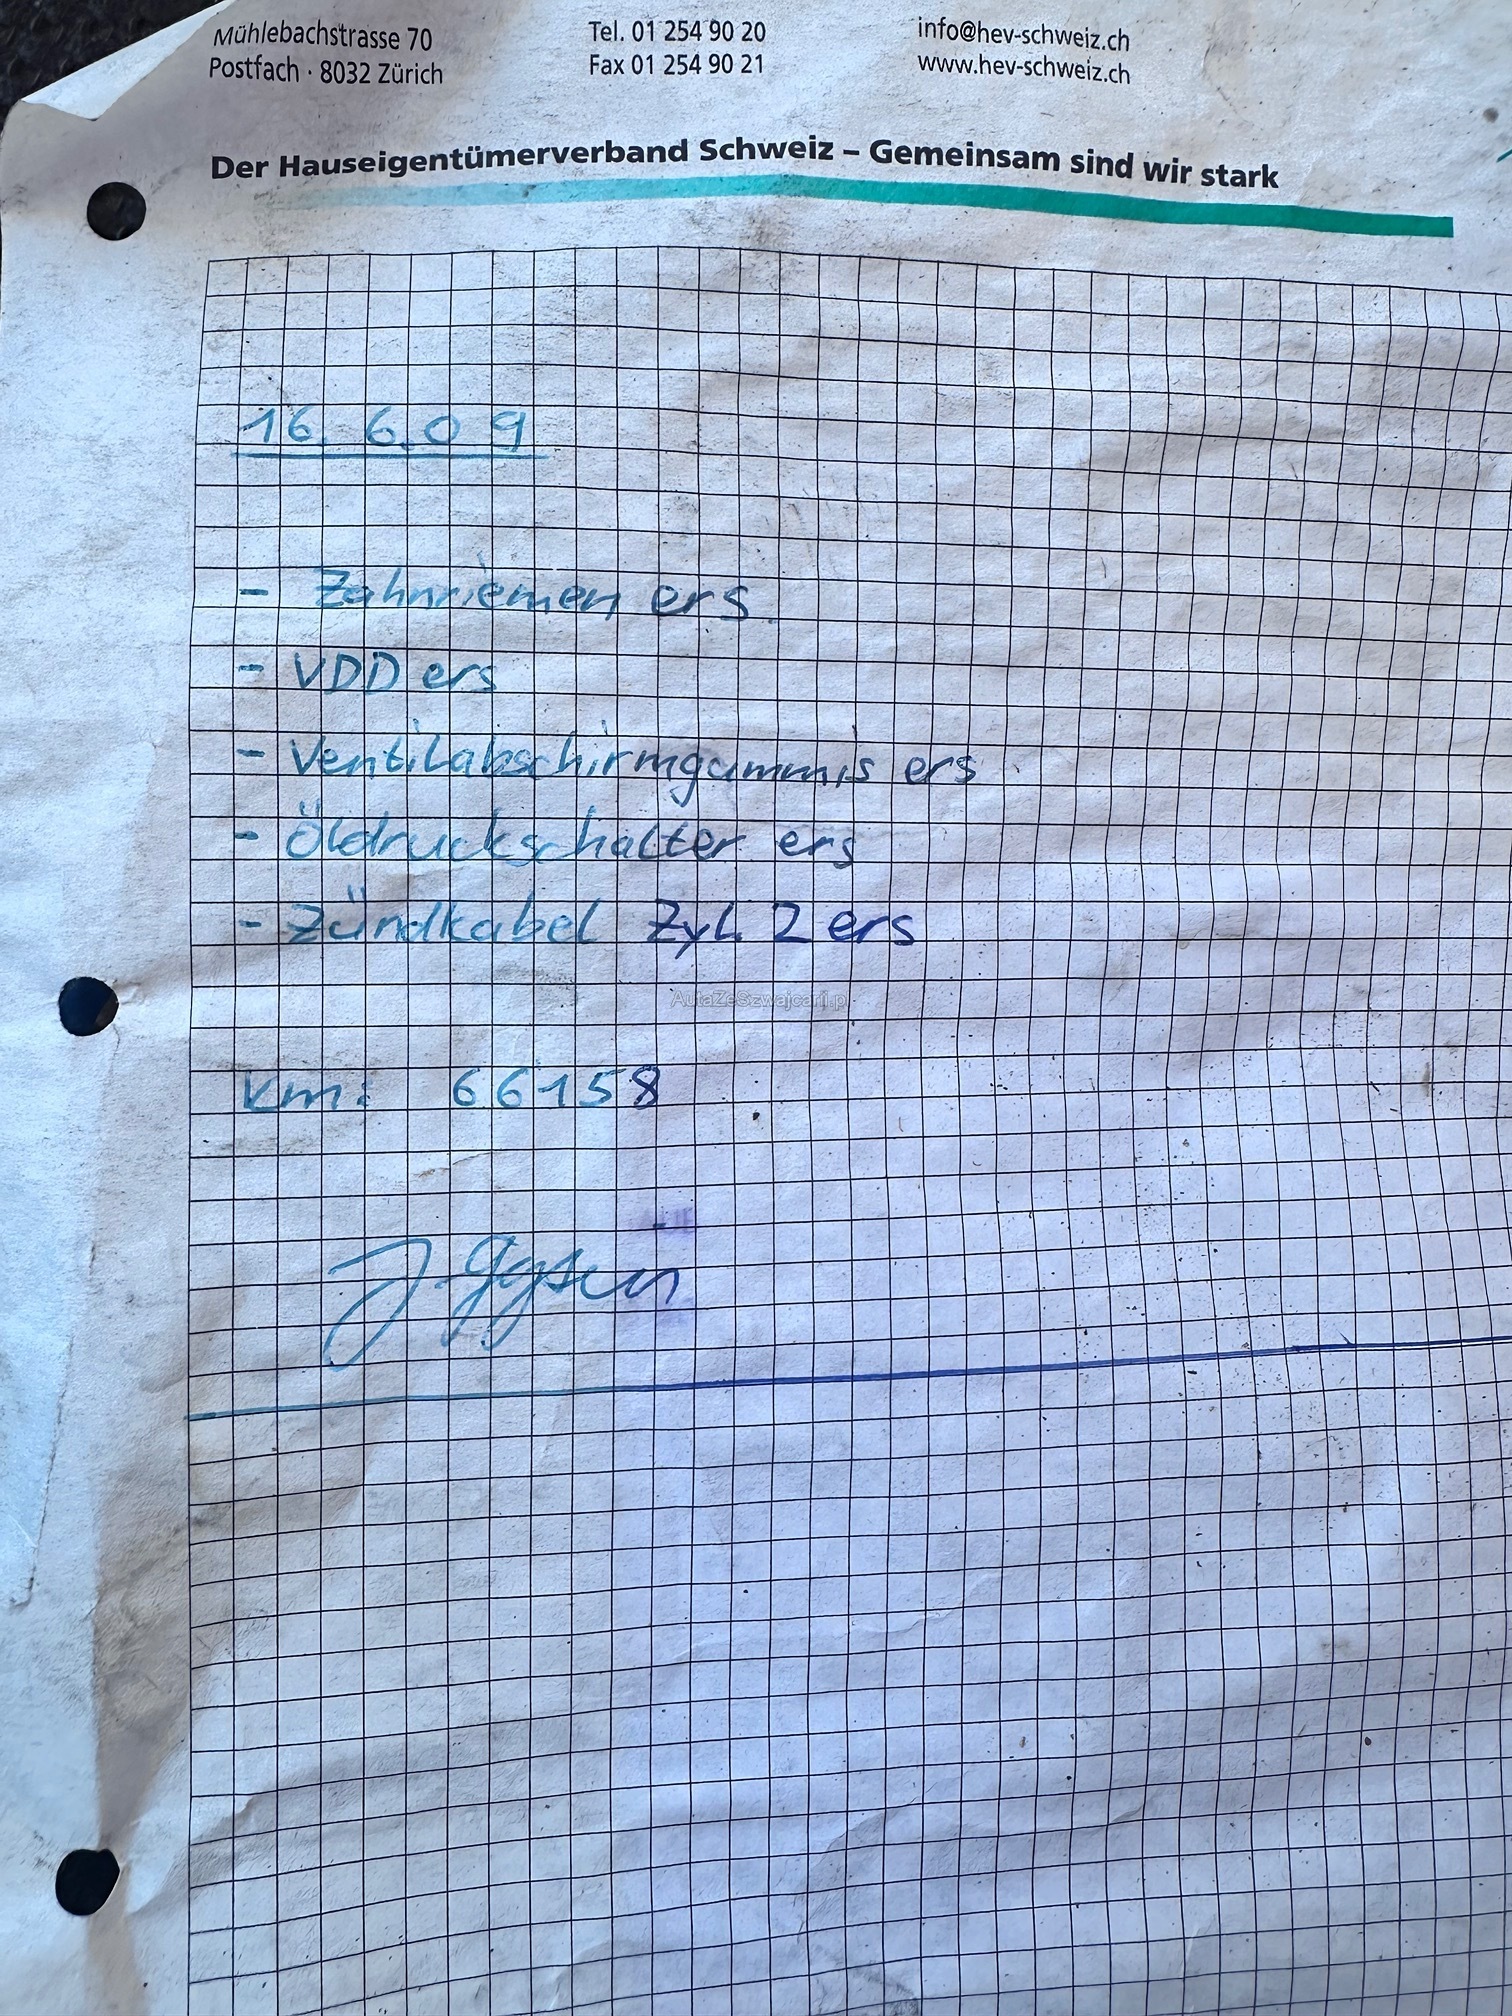 Mühlebachstrasse 70
Postfach · 8032 Zürich
Tel. 01 254 90 20
Fax 01 254 90 21
info@hev-schweiz.ch
www.hev-schweiz.ch
Der Hauseigentümerverband Schweiz – Gemeinsam sind wir stark
16. 6.09
- Zahnriemen ers.
- VDD ers
- Ventilabschirmgummis ers
- Öldruckschalter ers
- Zündkabel Zyl. 2 ers
AutaZeSzwajcarii.pl
km: 66158